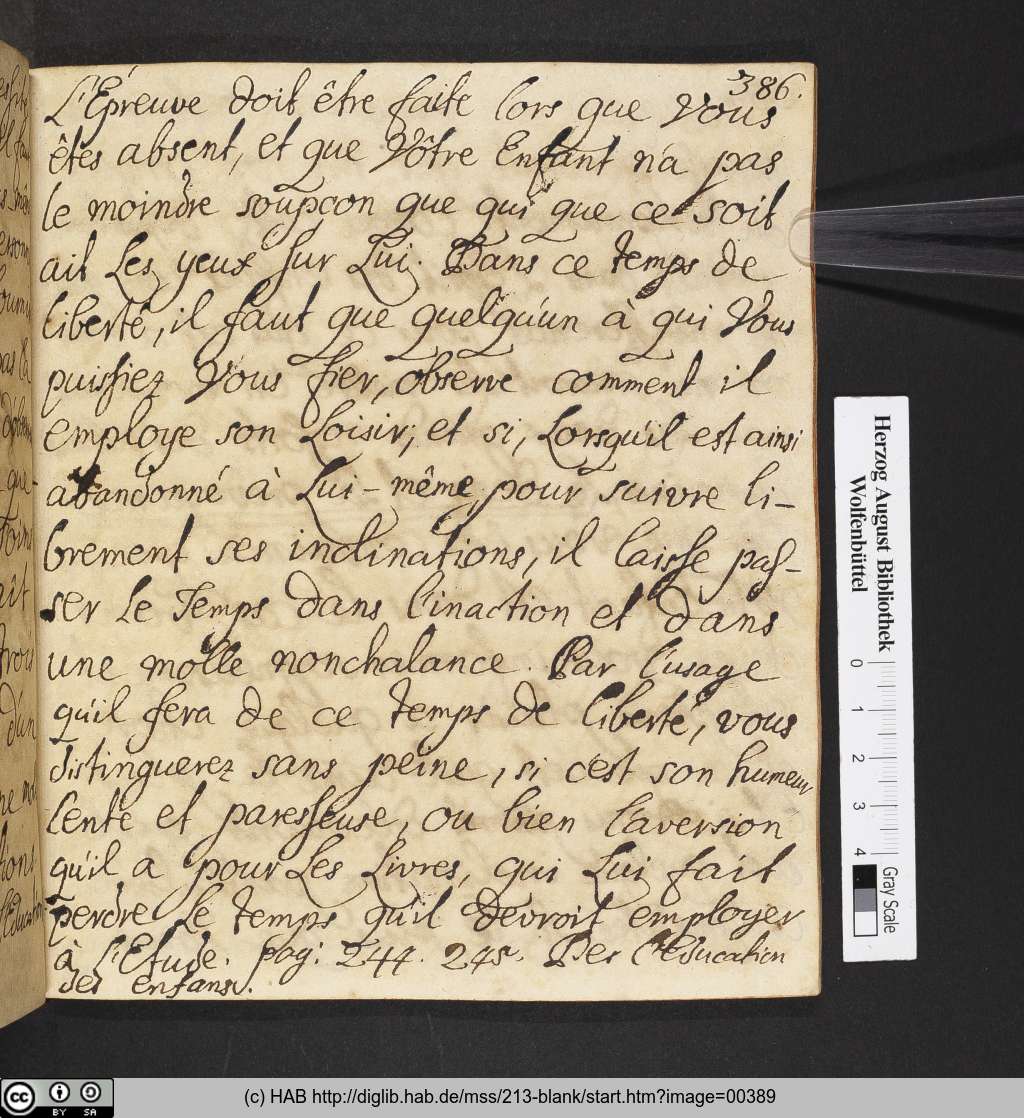 386.
L'Épreuve doit être faite lors que vous
êtes absent, et que Vôtre Enfant n'a pas
le moindre soupçon que qui que ce soit
ait Les yeux sur Lui. Dans ce temps de
liberté, il faut que quelqu'un à qui Vous
puissiez Vous fier, observe comment il
employe son Loisir; et si, Lorsqu'il est ainsi
abandonné à Lui-même, pour suivre li-
brement ses inclinations, il laisse pas-
ser Le Temps dans l'inaction et dans
une molle nonchalance. Par l'usage
qu'il fera de ce temps de liberté, vous
distinguerez sans peine, si c'est son humeur
lente et paresseuse, ou bien l'aversion
qu'il a pour Les Livres, qui Lui fait
perdre Le temps qu'il devroit employer
à L'Etude. pag: 244. 245. De l'Education
des enfans.
Herzog August Bibliothek
Wolfenbüttel
0 1 2 3 4
Gray Scale
cc BY SA
(c) HAB http://diglib.hab.de/mss/213-blank/start.htm?image=00389